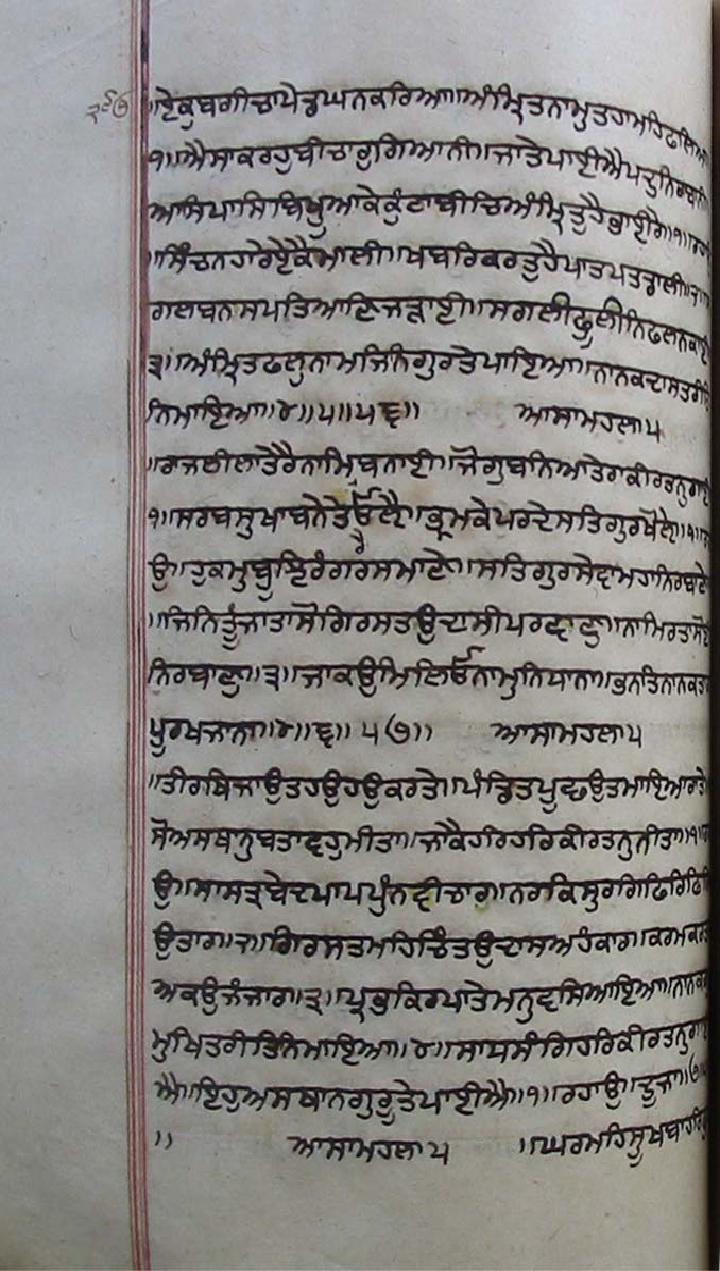 ੨੯੭
॥ਏਕੁਬਗੀਚਾਪੇਡਘਨਕਰਿਆ॥ਅੰਮ੍ਰਿਤਨਾਮੁਤਹਾਮਹਿਫਲਿਆ
੧॥ਐਸਾਕਰਹੁਬੀਚਾਰੁਗਿਆਨੀ॥ਜਾਤੇਪਾਈਐਪਦੁਨਿਰਬਾਨੀ
ਆਸਿਪਾਸਿਬਿਖੂਆਕੇਕੁੰਟਾਬੀਚਿਅੰਮ੍ਰਿਤੁਹੈਭਾਈਰੇ॥੧॥ਰਹਾ
॥ਸਿੰਚਨਹਾਰੇਏਕੈਮਾਲੀ॥ਖਬਰਿਕਰਤੁਹੈਪਾਤਪਤਡਾਲੀ॥੨॥
ਗਲਬਨਸਪਤਿਆਣਿਜੜਾਈ॥ਸਗਲੀਫੂਲੀਨਿਫਲਨਕਾਈ
੩॥ਅੰਮ੍ਰਿਤਫਲੁਨਾਮਜਿਨਿਗੁਰਤੇਪਾਇਆ॥ਨਾਨਕਦਾਸਤਰੀ
ਨਿਮਾਇਆ॥੪॥੫॥੫੬॥ ਆਸਾਮਹਲਾ੫
॥ਰਾਜਲੀਲਾਤੇਰੈਨਾਮਿਬਨਾਈ॥ਜੋਗੁਬਨਿਆਤੇਰਾਕੀਰਤਨੁਗਾਈ
੧॥ਸਰਬਸੁਖਾਬਨੇਤੇਰੈਓਲੈ॥ਭ੍ਰਮਕੇਪਰਦੇਸਤਿਗੁਰਖੋਲੇ॥੧॥ਰ
ਉ॥ਹੁਕਮੁਬੂਝਿਰੰਗਰਸਮਾਣੇ॥ਸਤਿਗੁਰਸੇਵਾਮਹਾਨਿਰਬਾਣੇ
॥ਜਿਨਿਤੂੰਜਾਤਾਸੋਗਿਰਸਤਉਦਾਸੀਪਰਵਾਣੁ॥ਨਾਮਿਰਤਾਸੋਈ
ਨਿਰਬਾਣੁ॥੩॥ਜਾਕਉਮਿਲਿਓਨਾਮੁਨਿਧਾਨਾ॥ਭਨਤਿਨਾਨਕਤਾ
ਪੂਰਖਜਾਨਾ॥੪॥੬॥੫੭॥ ਆਸਾਮਹਲਾ੫
॥ਤੀਰਥਿਜਾਉਤਹਉਹਉਕਰਤੇ॥ਪੰਡਿਤਪੂਛਉਤਮਾਇਆਰਾਤੇ
ਸੋਅਸਥਾਨੁਬਤਾਵਹੁਮੀਤਾ॥ਜਾਕੈਹਰਿਹਰਿਕੀਰਤਨੁਨੀਤਾ॥੧॥ਰ
ਉ॥ਸਾਸਤ੍ਰਬੇਦਪਾਪਪੁੰਨਵੀਚਾਰ॥ਨਰਕਿਸੁਰਗਿਫਿਰਿਫਿਰਿ
ਉਤਾਰ॥੨॥ਗਿਰਸਤਮਹਿਚਿੰਤਉਦਾਸਅਹੰਕਾਰ॥ਕਰਮਕਰਤ
ਅਕਉਜੰਜਾਰ॥੩॥ਪ੍ਰਭਕਿਰਪਾਤੇਮਨੁਵਸਿਆਇਆ॥ਨਾਨਕ
ਮੁਖਿਤਰੀਤਿਨਿਮਾਇਆ॥੪॥ਸਾਧਸੰਗਿਹਰਿਕੀਰਤਨੁਗਾਈ
ਐ॥ਇਹੁਅਸਥਾਨਗੁਰੂਤੇਪਾਈਐ॥੧॥ਰਹਾਉ॥ਦੂਜਾ॥੭॥
॥ ਆਸਾਮਹਲਾ੫ ॥ਘਰਮਹਿਸੂਖਬਾਹਰਿ